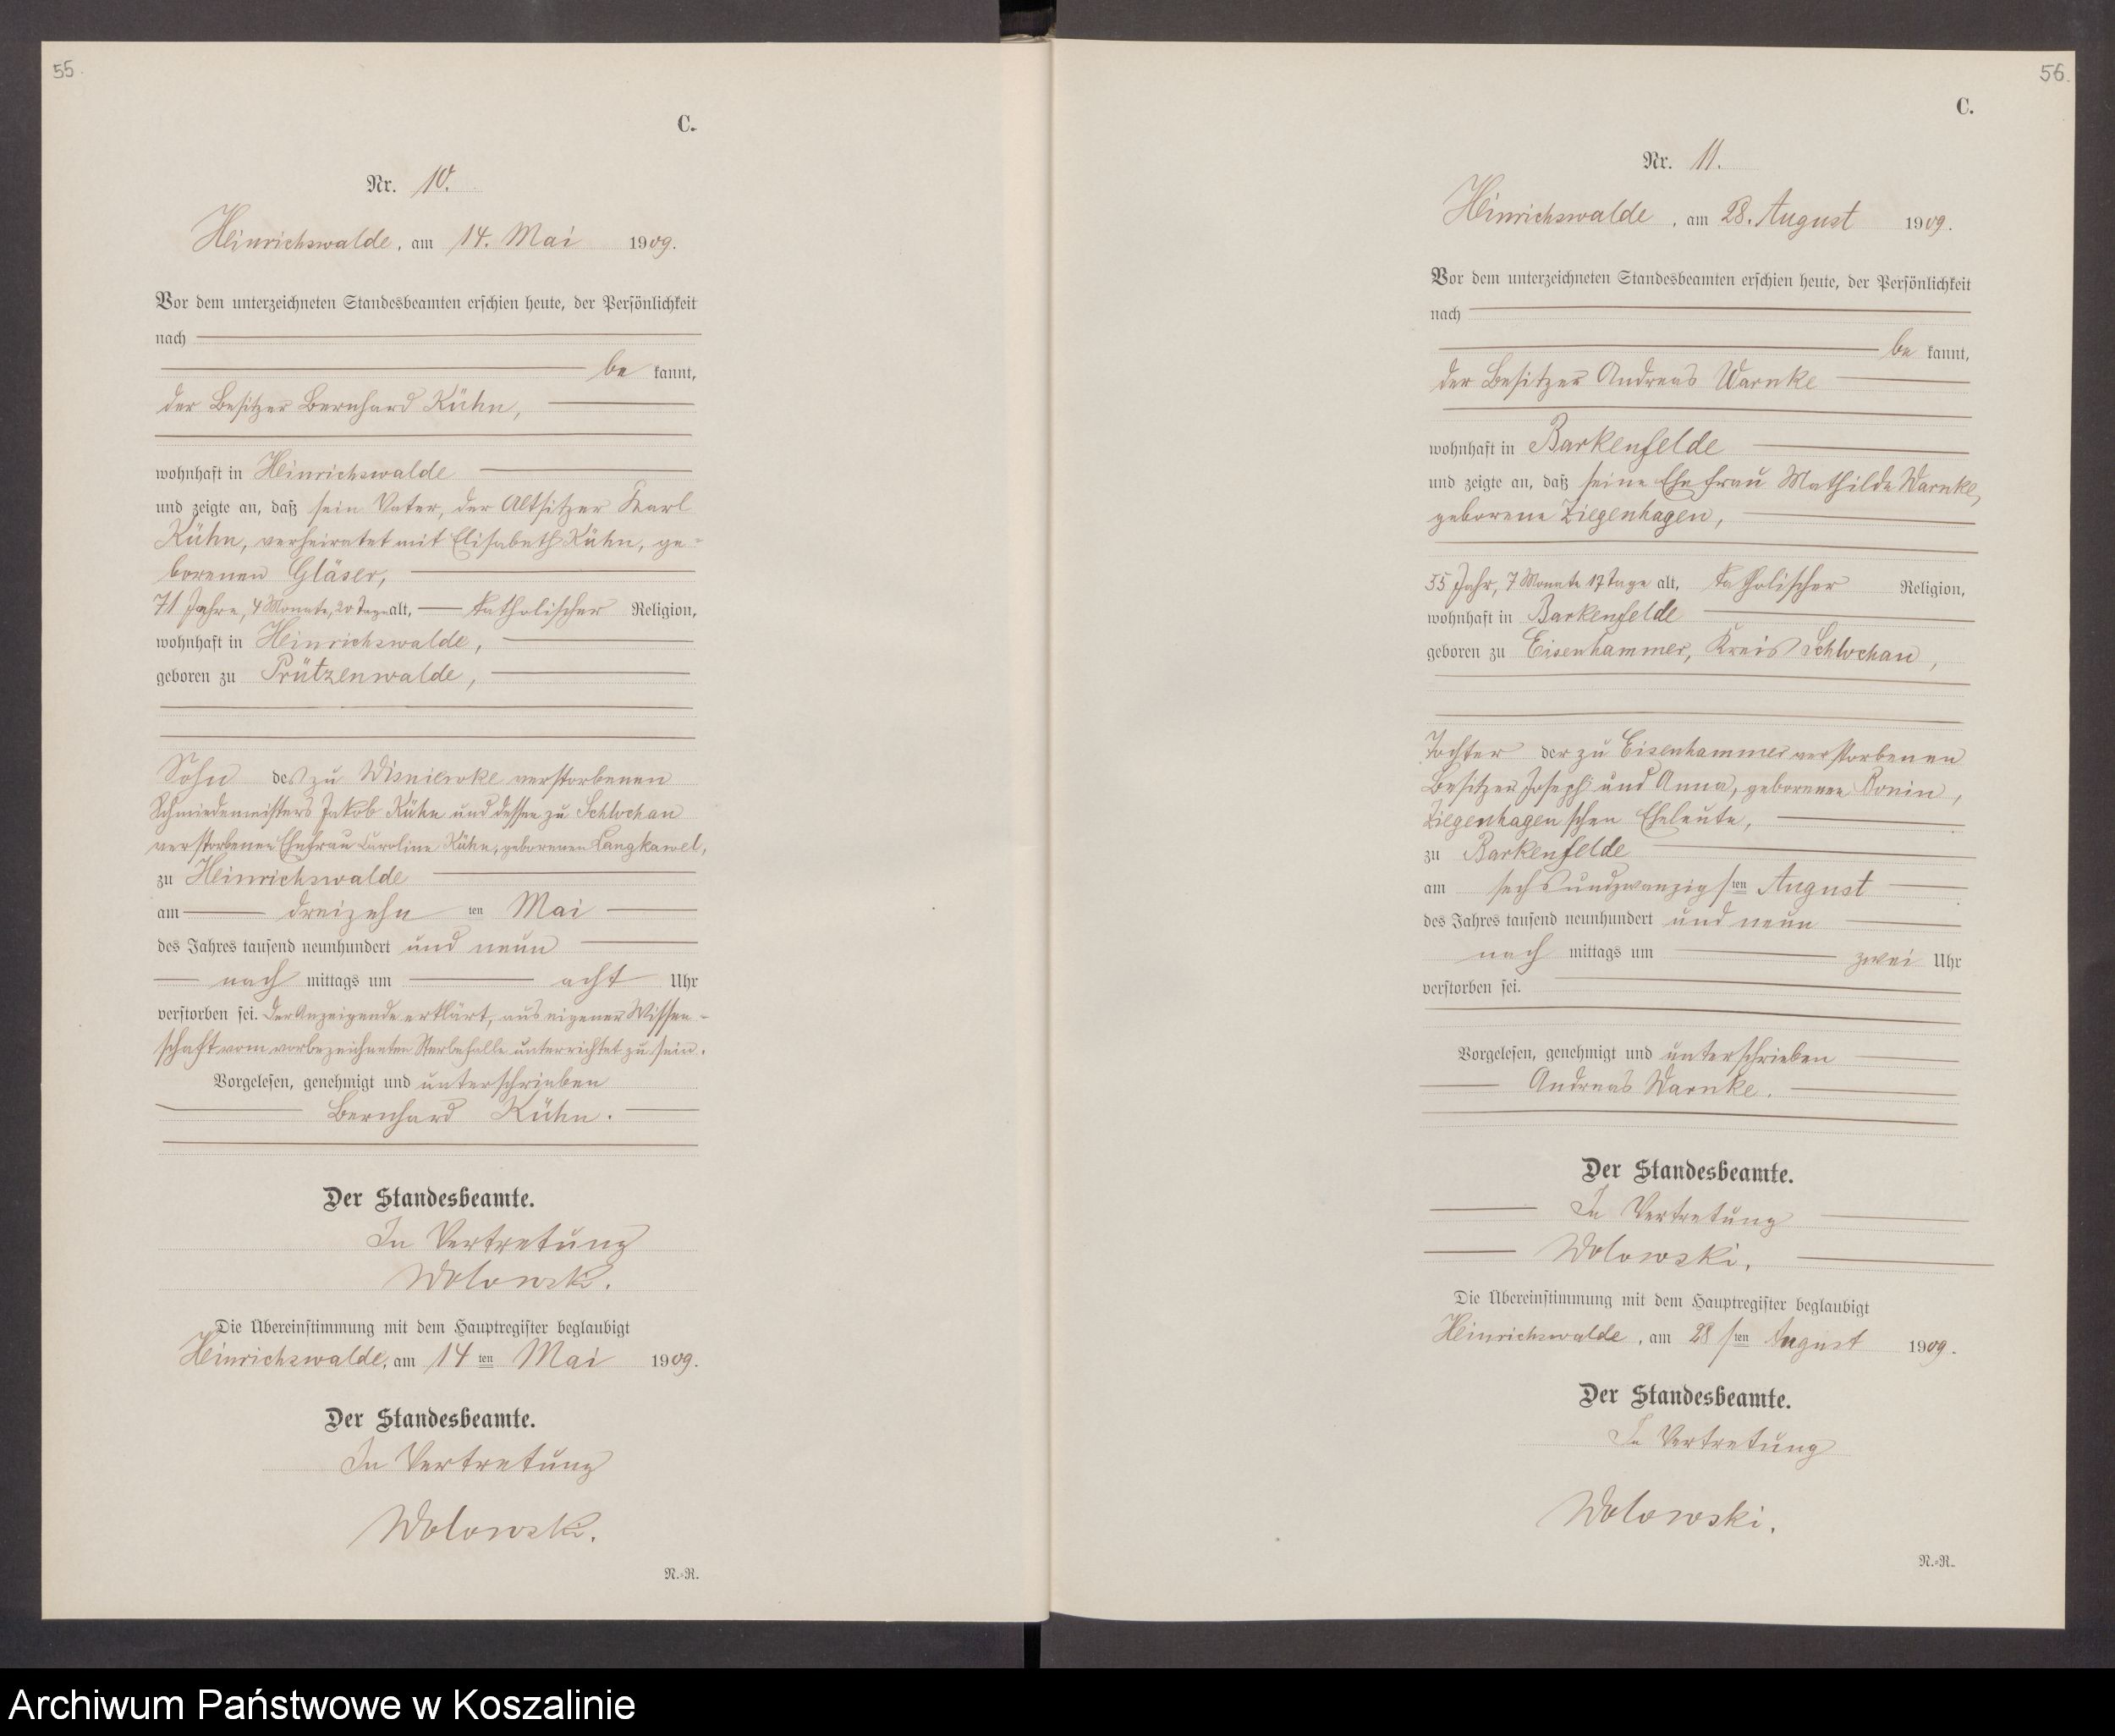 55.
C.
Nr. 10.
Heinrichswalde, am 14. Mai 1909.
Vor dem unterzeichneten Standesbeamten erschien heute, der Persönlichkeit
nach
be kannt,
der Besitzer Bernhard Kühn,
wohnhaft in Heinrichswalde
und zeigte an, daß sein Vater, der Altsitzer Karl
Kühn, verheiratet mit Elisabeth Kühn, ge-
borenen Gläser,
71 Jahre, 4 Monate, 20 Tage alt, katholischer Religion,
wohnhaft in Heinrichswalde,
geboren zu Prützenwalde,
Sohn des zu verstorbenen
Schmiedemeisters Jakob Kühn und dessen zu Schlochau
verstorbenen Ehefrau Caroline Kühn, geborenen Langkawel,
zu Heinrichswalde
am dreizehn ten Mai
des Jahres tausend neunhundert und neun
nach mittags um acht Uhr
verstorben sei. Der Anzeigende erklärt, aus eigener Wissen-
schaft vom vorbezeichneten Sterbefalle unterrichtet zu sein.
Vorgelesen, genehmigt und unterschrieben
Bernhard Kühn.
Der Standesbeamte.
In Vertretung
Wolowski.
Die Übereinstimmung mit dem Hauptregister beglaubigt
Heinrichswalde, am 14 ten Mai 1909.
Der Standesbeamte.
In Vertretung
Wolowski.
N.-R.
56.
C.
Nr. 11.
Heinrichswalde, am 28. August 1909.
Vor dem unterzeichneten Standesbeamten erschien heute, der Persönlichkeit
nach
be kannt,
der Besitzer Andreas Warnke
wohnhaft in Barkenfelde
und zeigte an, daß seine Ehefrau Mathilde Warnke,
geborene Ziegenhagen,
55 Jahr, 7 Monate 17 Tage alt, katholischer Religion,
wohnhaft in Barkenfelde
geboren zu Eisenhammer, Kreis Schlochau,
Tochter der zu Eisenhammer verstorbenen
Besitzer Joseph und Anna, geborenen Bonin,
Ziegenhagen'schen Eheleute,
zu Barkenfelde
am sechsundzwanzigs ten August
des Jahres tausend neunhundert und neun
nach mittags um zwei Uhr
verstorben sei.
Vorgelesen, genehmigt und unterschrieben
Andreas Warnke.
Der Standesbeamte.
In Vertretung
Wolowski.
Die Übereinstimmung mit dem Hauptregister beglaubigt
Heinrichswalde, am 28 sten August 1909.
Der Standesbeamte.
In Vertretung
Wolowski.
N.-R.
Archiwum Państwowe w Koszalinie